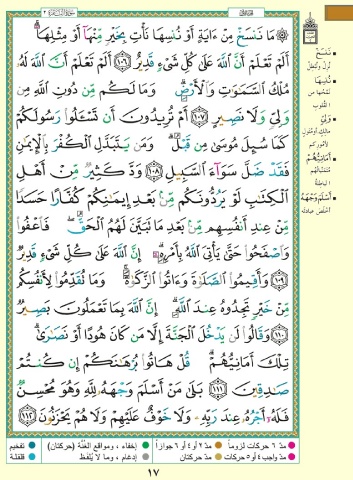 مَا نَنسَخْ مِنْ ءَايَةٍ أَوْ نُنسِهَا نَأْتِ بِخَيْرٍ مِّنْهَآ أَوْ مِثْلِهَآ ۗ
أَلَمْ تَعْلَمْ أَنَّ ٱللَّهَ عَلَىٰ كُلِّ شَىْءٍ قَدِيرٌ ۝١٠٦ أَلَمْ تَعْلَمْ أَنَّ ٱللَّهَ لَهُۥ
مُلْكُ ٱلسَّمَٰوَٰتِ وَٱلْأَرْضِ ۗ وَمَا لَكُم مِّن دُونِ ٱللَّهِ مِن
وَلِىٍّ وَلَا نَصِيرٍ ۝١٠٧ أَمْ تُرِيدُونَ أَن تَسْـَٔلُوا۟ رَسُولَكُمْ
كَمَا سُئِلَ مُوسَىٰ مِن قَبْلُ ۗ وَمَن يَتَبَدَّلِ ٱلْكُفْرَ بِٱلْإِيمَٰنِ
فَقَدْ ضَلَّ سَوَآءَ ٱلسَّبِيلِ ۝١٠٨ وَدَّ كَثِيرٌ مِّنْ أَهْلِ
ٱلْكِتَٰبِ لَوْ يَرُدُّونَكُم مِّنۢ بَعْدِ إِيمَٰنِكُمْ كُفَّارًا حَسَدًا
مِّنْ عِندِ أَنفُسِهِم مِّنۢ بَعْدِ مَا تَبَيَّنَ لَهُمُ ٱلْحَقُّ ۖ فَٱعْفُوا۟
وَٱصْفَحُوا۟ حَتَّىٰ يَأْتِىَ ٱللَّهُ بِأَمْرِهِۦٓ ۗ إِنَّ ٱللَّهَ عَلَىٰ كُلِّ شَىْءٍ قَدِيرٌ
۝١٠٩ وَأَقِيمُوا۟ ٱلصَّلَوٰةَ وَءَاتُوا۟ ٱلزَّكَوٰةَ ۚ وَمَا تُقَدِّمُوا۟ لِأَنفُسِكُم
مِّنْ خَيْرٍ تَجِدُوهُ عِندَ ٱللَّهِ ۗ إِنَّ ٱللَّهَ بِمَا تَعْمَلُونَ بَصِيرٌ
۝١١٠ وَقَالُوا۟ لَن يَدْخُلَ ٱلْجَنَّةَ إِلَّا مَن كَانَ هُودًا أَوْ نَصَٰرَىٰ ۗ
تِلْكَ أَمَانِيُّهُمْ ۗ قُلْ هَاتُوا۟ بُرْهَٰنَكُمْ إِن كُنتُمْ
صَٰدِقِينَ ۝١١١ بَلَىٰ مَنْ أَسْلَمَ وَجْهَهُۥ لِلَّهِ وَهُوَ مُحْسِنٌ
فَلَهُۥٓ أَجْرُهُۥ عِندَ رَبِّهِۦ وَلَا خَوْفٌ عَلَيْهِمْ وَلَا هُمْ يَحْزَنُونَ ۝١١٢
نَنسَخْ
نُنسِهَا
وَلِيٍّ
أَمَانِيُّهُمْ
أَسْلَمَ وَجْهَهُ
مدّ ٦ حركات لزوماً
مدّ ٢ أو ٤ أو ٦ جوازاً
إخفاء، ومواقع الغُنَّة (حركتان)
تفخيم
مدّ واجب ٤ أو ٥ حركات
مدّ حركتان
إدغام، وما لا يُلفَظ
قلقلة
١٧